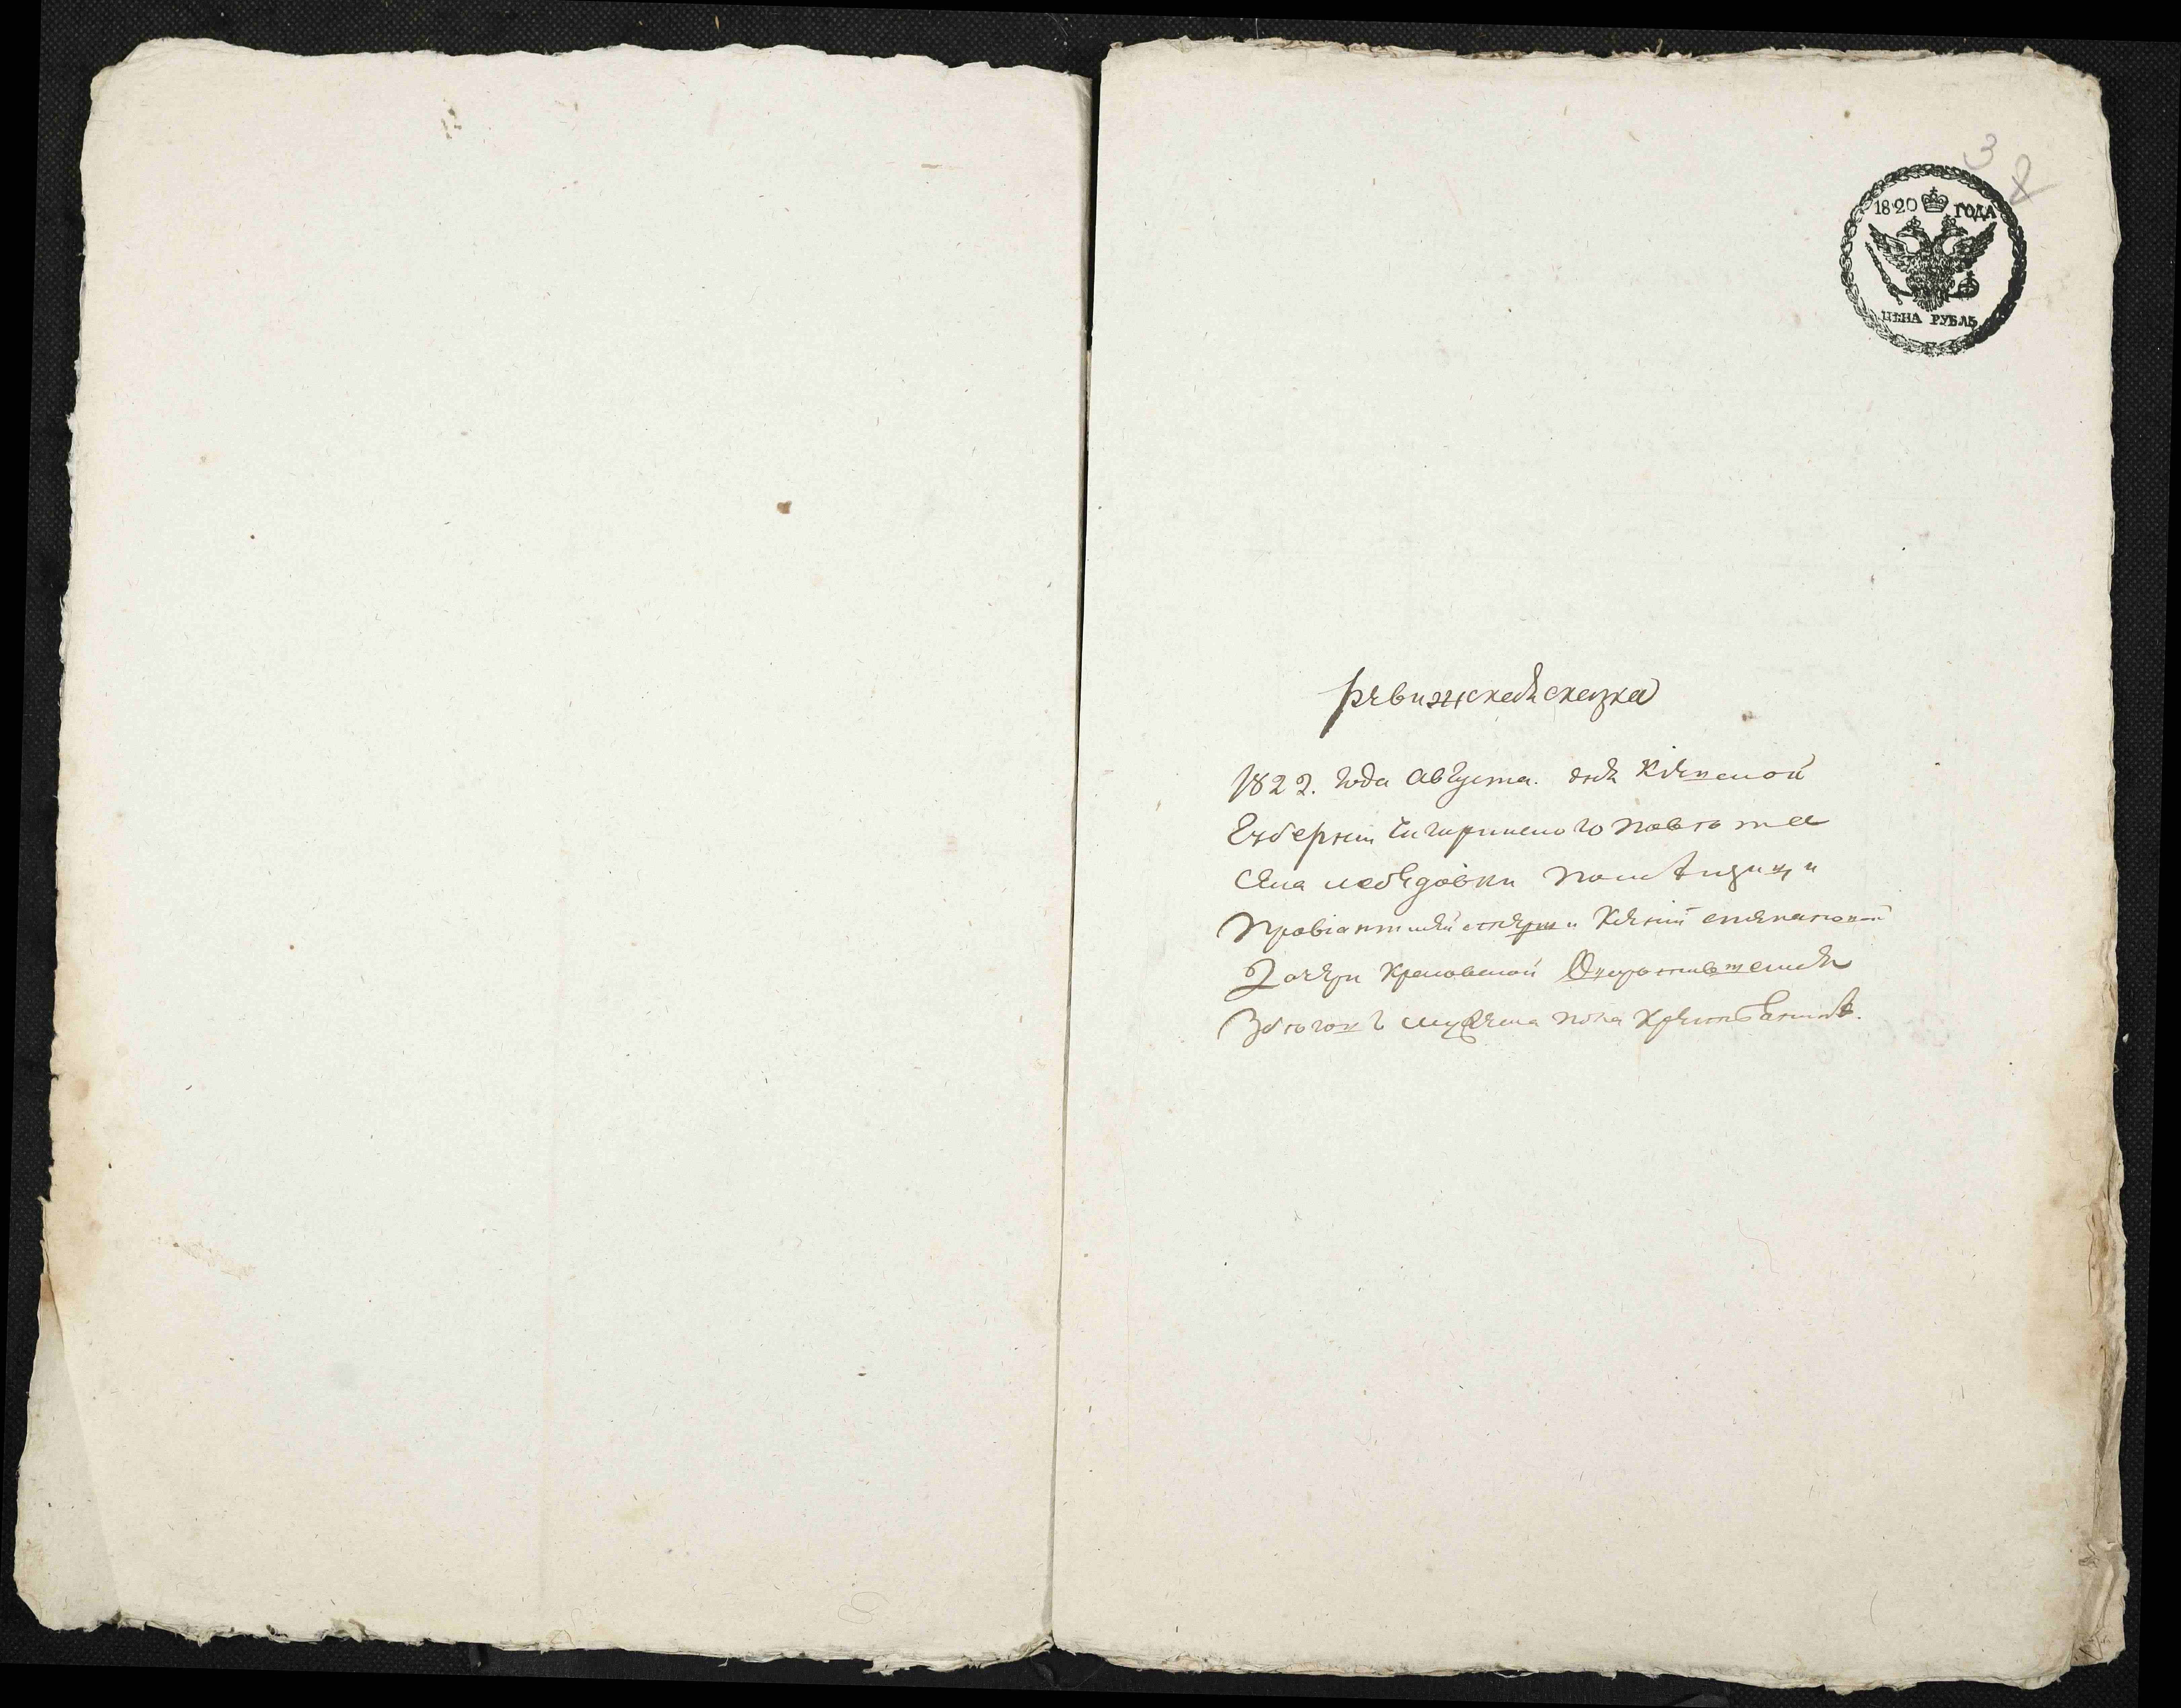 3
2
1820 ГОДА
ЦѢНА РУБЛЬ
Ревижская сказка
1822. года августа. дня Кіевской
Губерніи Чигиринского повѣта
села лебедовки помѣщици
Провіантмейстерши Ксеніи степановой
дочери Красовской
збѣгогъ мужеска пола крестьянинѣ.